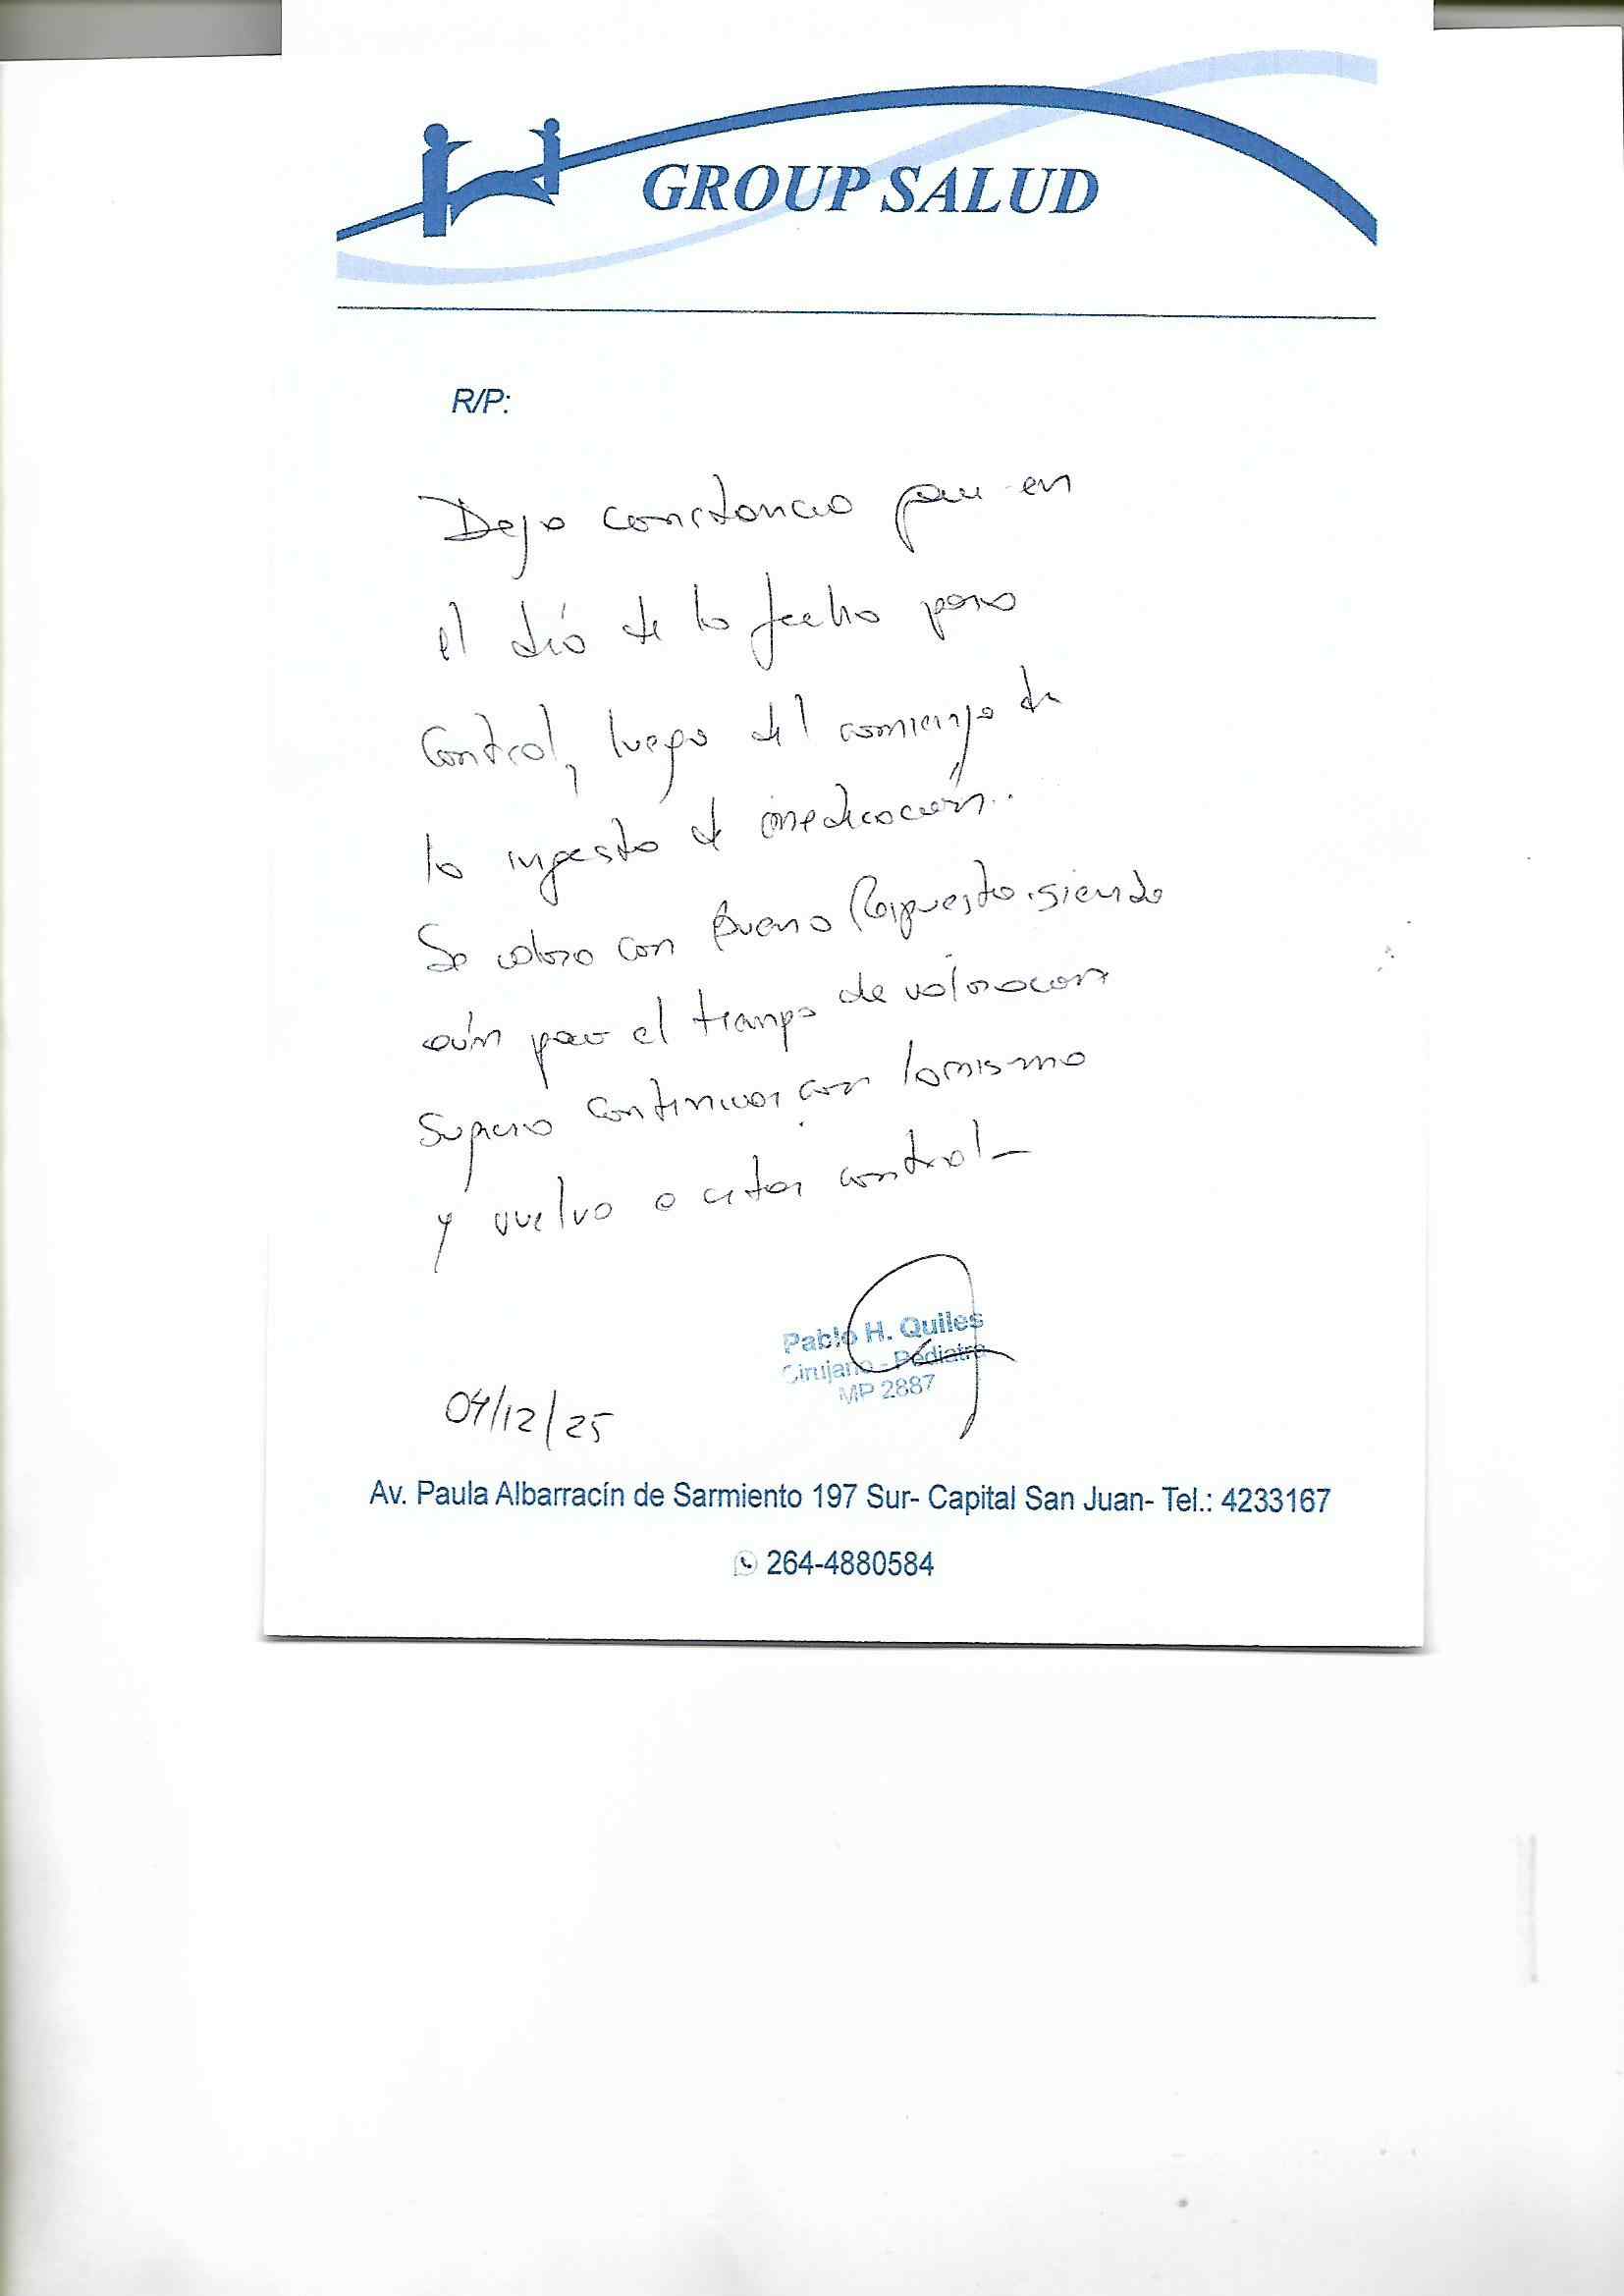 GROUP SALUD
R/P:
Dejo constancia que en
el día de la fecha pasa
Control, luego del comienzo de
la ingesta de medicación.
Se valora con Buena Respuesta. siendo
aún poco el tiempo de valoracion
Sugiero continuar con lo mismo
y vuelvo a citar control-
Pablo H. Quiles
Cirujano - Pediatra
MP 2887
04/12/25
Av. Paula Albarracín de Sarmiento 197 Sur- Capital San Juan- Tel.: 4233167
264-4880584